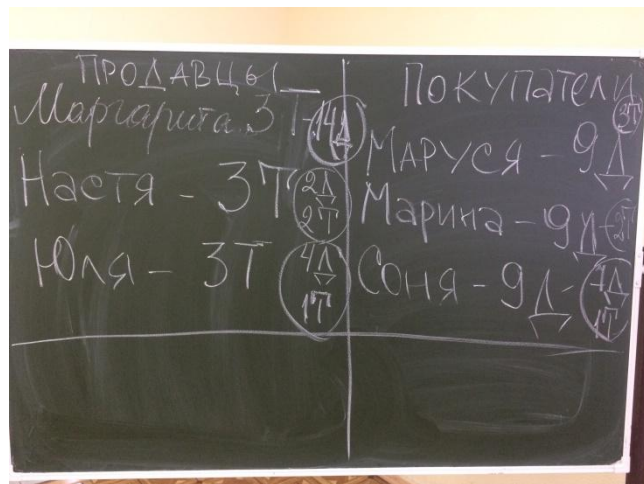 ПРОДАВЦЫ
Маргарита. 3Т - 14Д
Настя - 3Т 2Д 2Т
Юля - 3Т 4Д 1Т
ПОКУПАТЕЛИ
Маруся - 9Д
Марина - 9Д - 2Т
Соня - 9Д - 4Д 1Т